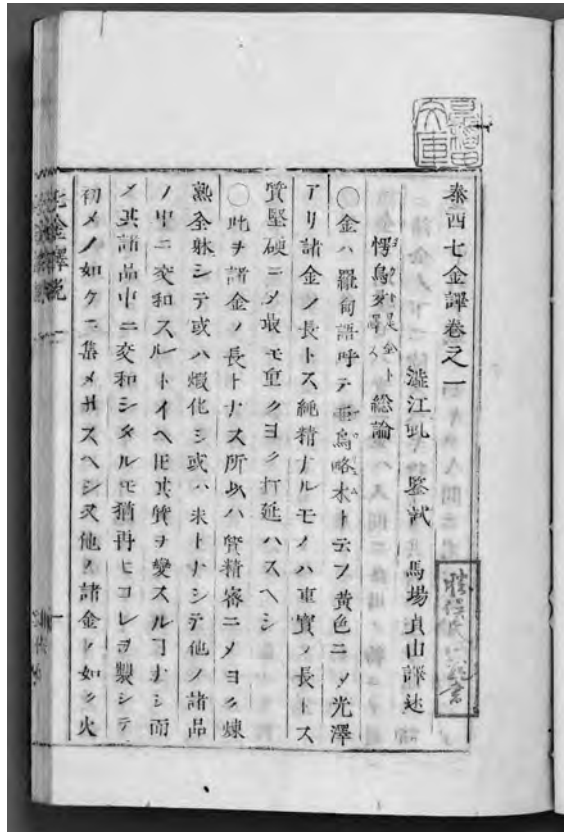 泰西七金譯卷之一
澁江虬 鑒試 馬場貞山譯述
愕烏多 譯スルニ是金ト 総論
〇金ハ羅甸語呼テ亜烏略木ト云フ黄色ニメ光澤
アリ諸金ノ長トス純精ナルモノハ重寳ノ長トス
質堅硬ニメ最モ重クヨク打延ハスヘシ
〇此ヲ諸金ノ長トナス所以ハ質精密ニメヨク煉
熟全躰シテ或ハ煆化シ或ハ末トナシテ他ノ諸品
ノ中ニ交和スルトイヘ𪜈其質ヲ變スルヿナシ而
メ其諸品中ニ交和シタルモ猶再ヒコレヲ製シテ
初メノ如ク一集メサスヘシ又他ノ諸金ノ如ク火
七金譯説